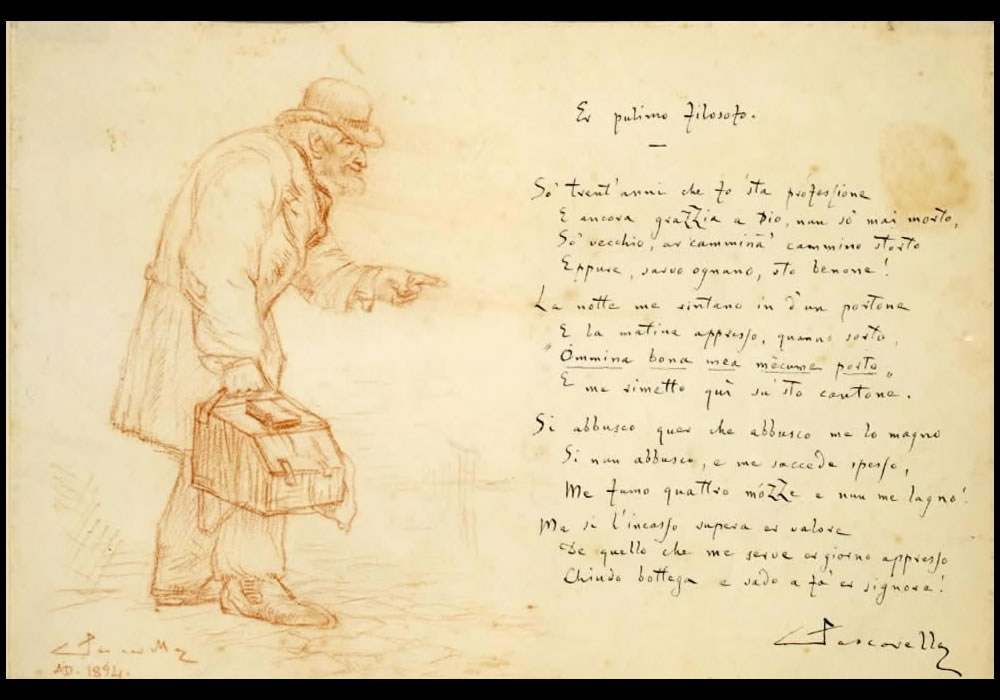 Er pulimo filosofo.
So' trent'anni che fo 'sta professione
E ancora grazzia a Dio, nun so' mai morto,
So' vecchio, ar camminà cammino storto
Eppure, sarvo ognuno, sto benone!
La notte me rintano in d'un portone
E la matina appresso, quanno sorto,
"Ommina bona mea mècume porto„
E me rimetto quì su 'sto cantone.
Si abbusco quer che abbusco me lo magno
Si nun abbusco, e me saccede spesso,
Me fumo quattro mózze e nun me lagno!
Ma si l'incasso supera er valore
De quello che me serve er giorno appresso
Chiudo bottega e vado a fa' er signore!
C Pascarella
C Pascarella
AD. 1894.